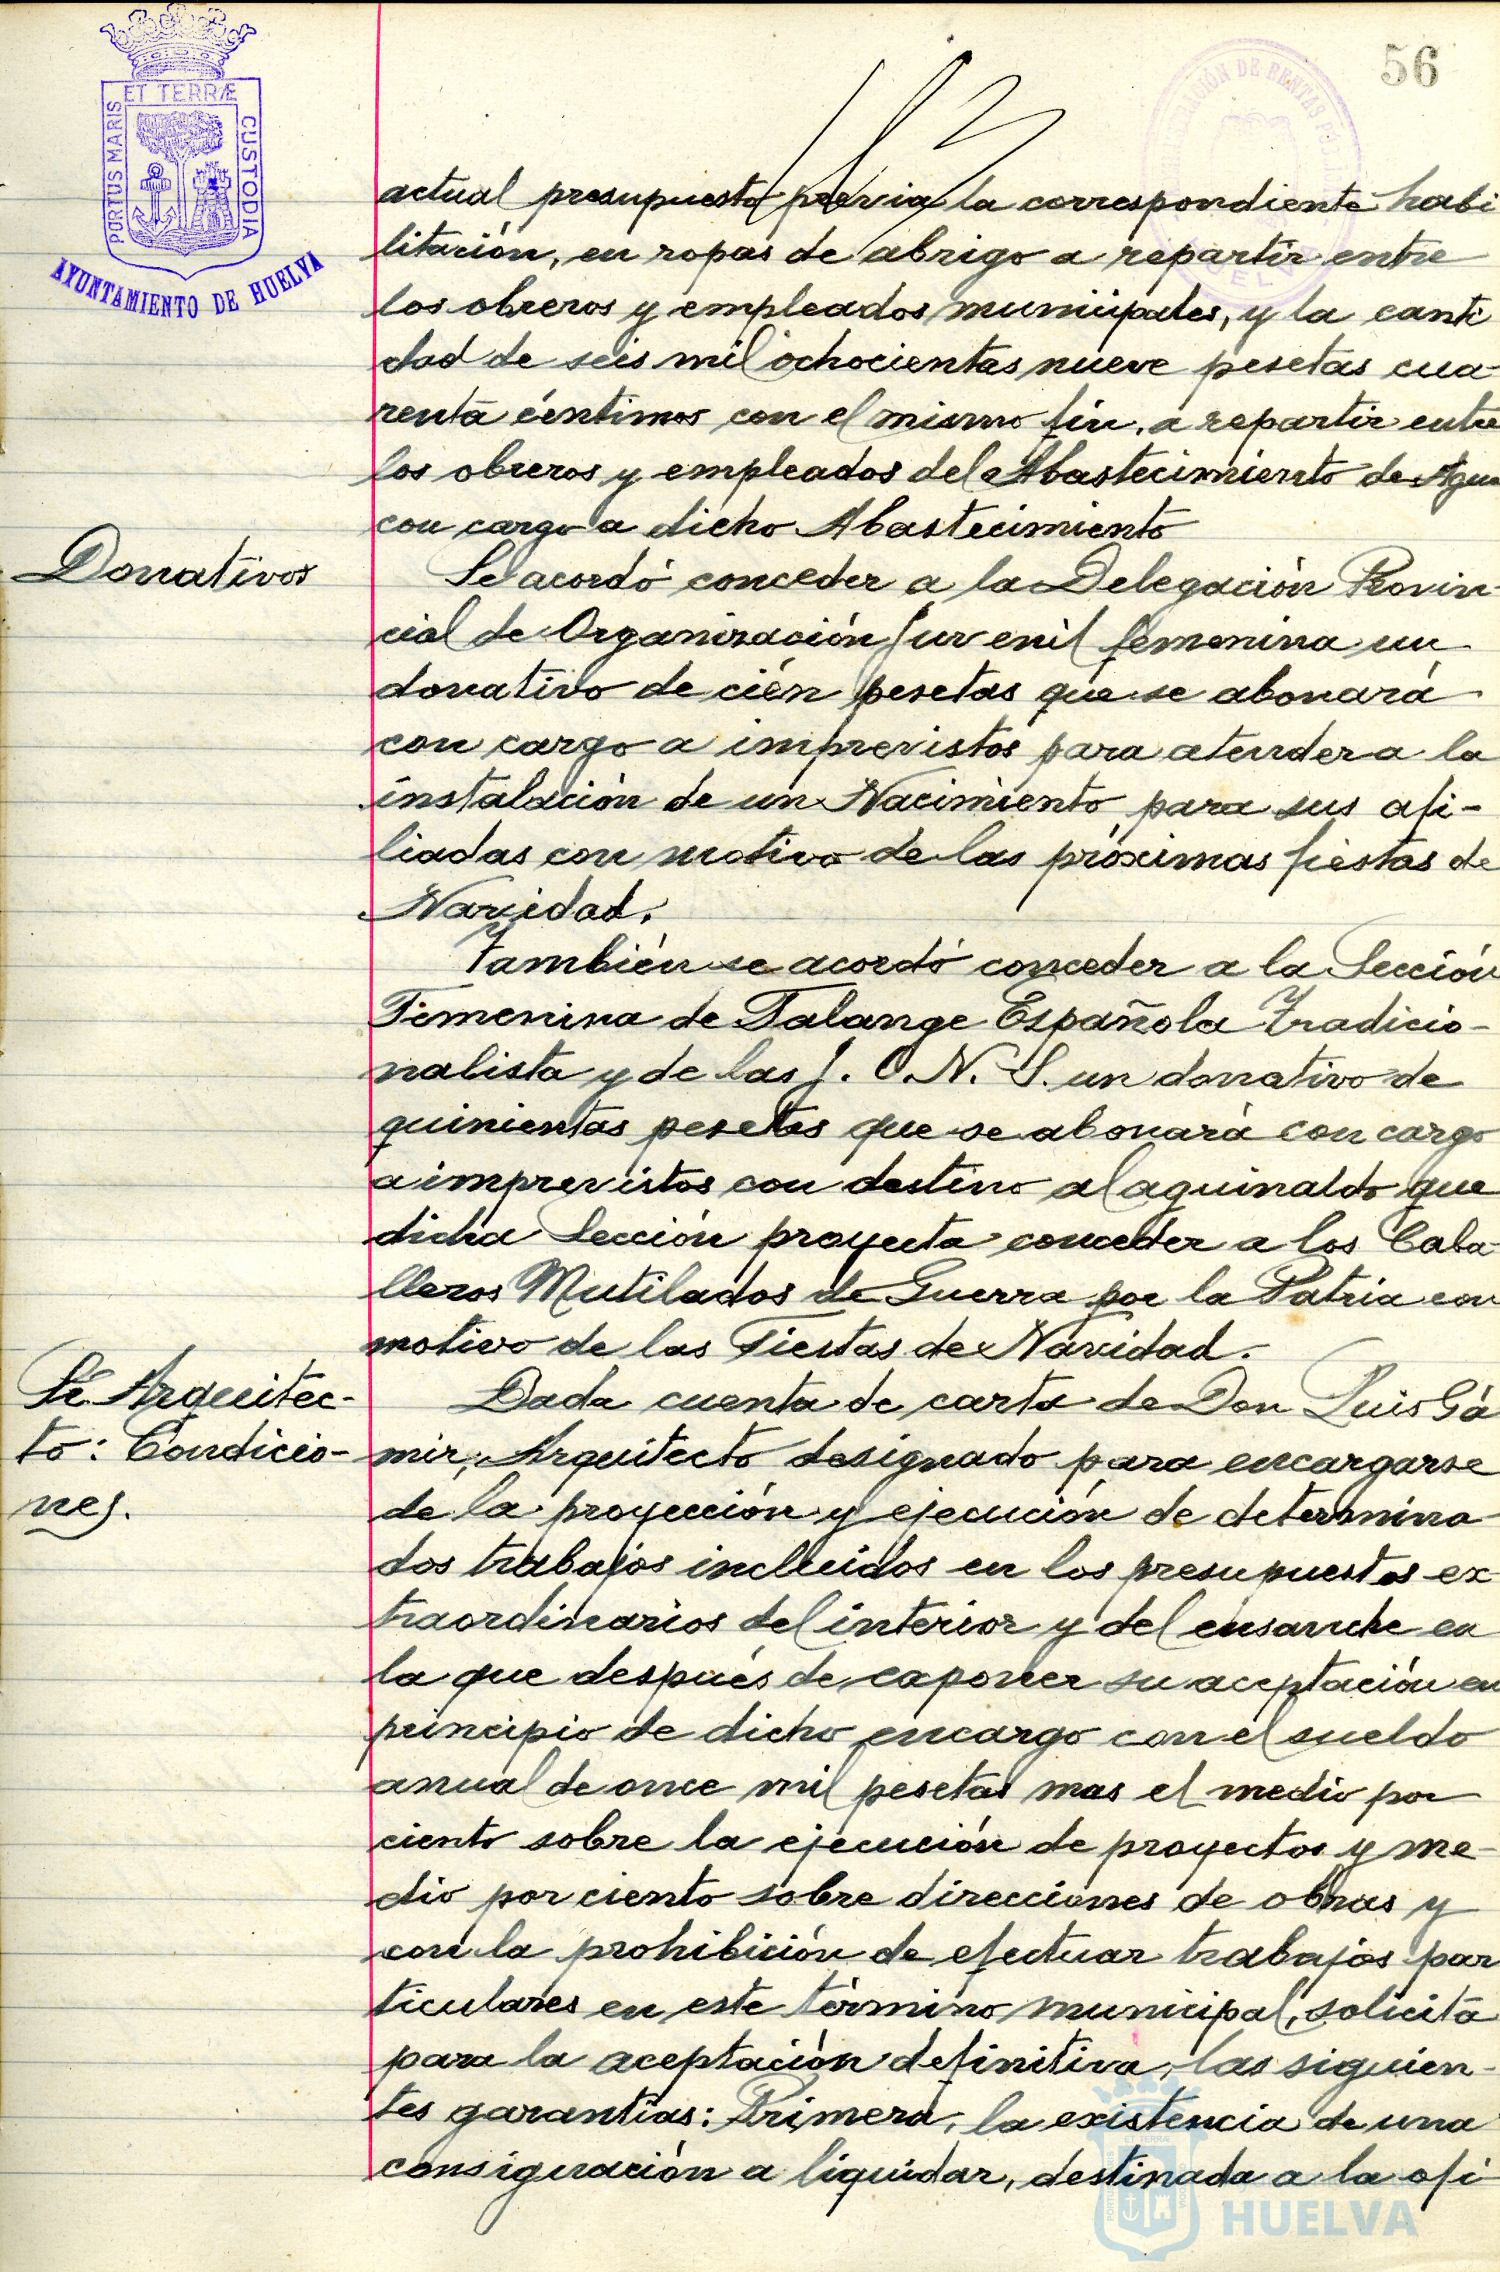 56
ET TERRÆ
PORTUS MARIS
CUSTODIA
AYUNTAMIENTO DE HUELVA
actual presupuesto previa la correspondiente habi
litación, en ropas de abrigo a repartir entre
los obreros y empleados municipales, y la canti
dad de seis mil ochocientas nueve pesetas cua-
renta céntimos con el mismo fin, a repartir entre
los obreros y empleados del Abastecimiento de Agua
con cargo a dicho Abastecimiento
Donativos
Se acordó conceder a la Delegación Provin-
cial de Organización Juvenil femenina un
donativo de cién pesetas que se abonará
con cargo a imprevistos para atender a la
instalación de un Nacimiento para sus afi-
liadas con motivo de las próximas fiestas de
Navidad.
También se acordó conceder a la Sección
Femenina de Falange Española Tradicio-
nalista y de las J. O. N. S. un donativo de
quinientas pesetas que se abonará con cargo
a imprevistos con destino al aguinaldo que
dicha Sección proyecta conceder a los Caba-
lleros Mutilados de Guerra por la Patria con
motivo de las Fiestas de Navidad.
Sr. Arquitec-
to: Condicio-
nes.
Dada cuenta de carta de Don Luis Gá
mir, Arquitecto designado para encargarse
de la proyección y ejecución de determina
dos trabajos incluidos en los presupuestos ex
traordinarios del interior y del ensanche en
la que después de exponer su aceptación en
principio de dicho encargo con el sueldo
anual de once mil pesetas mas el medio por
ciento sobre la ejecución de proyectos y me-
dio por ciento sobre direcciones de obras y
con la prohibición de efectuar trabajos par
ticulares en este término municipal, solicita
para la aceptación definitiva, las siguien-
tes garantías: Primera, la existencia de una
consignación a liquidar, destinada a la ofi
HUELVA